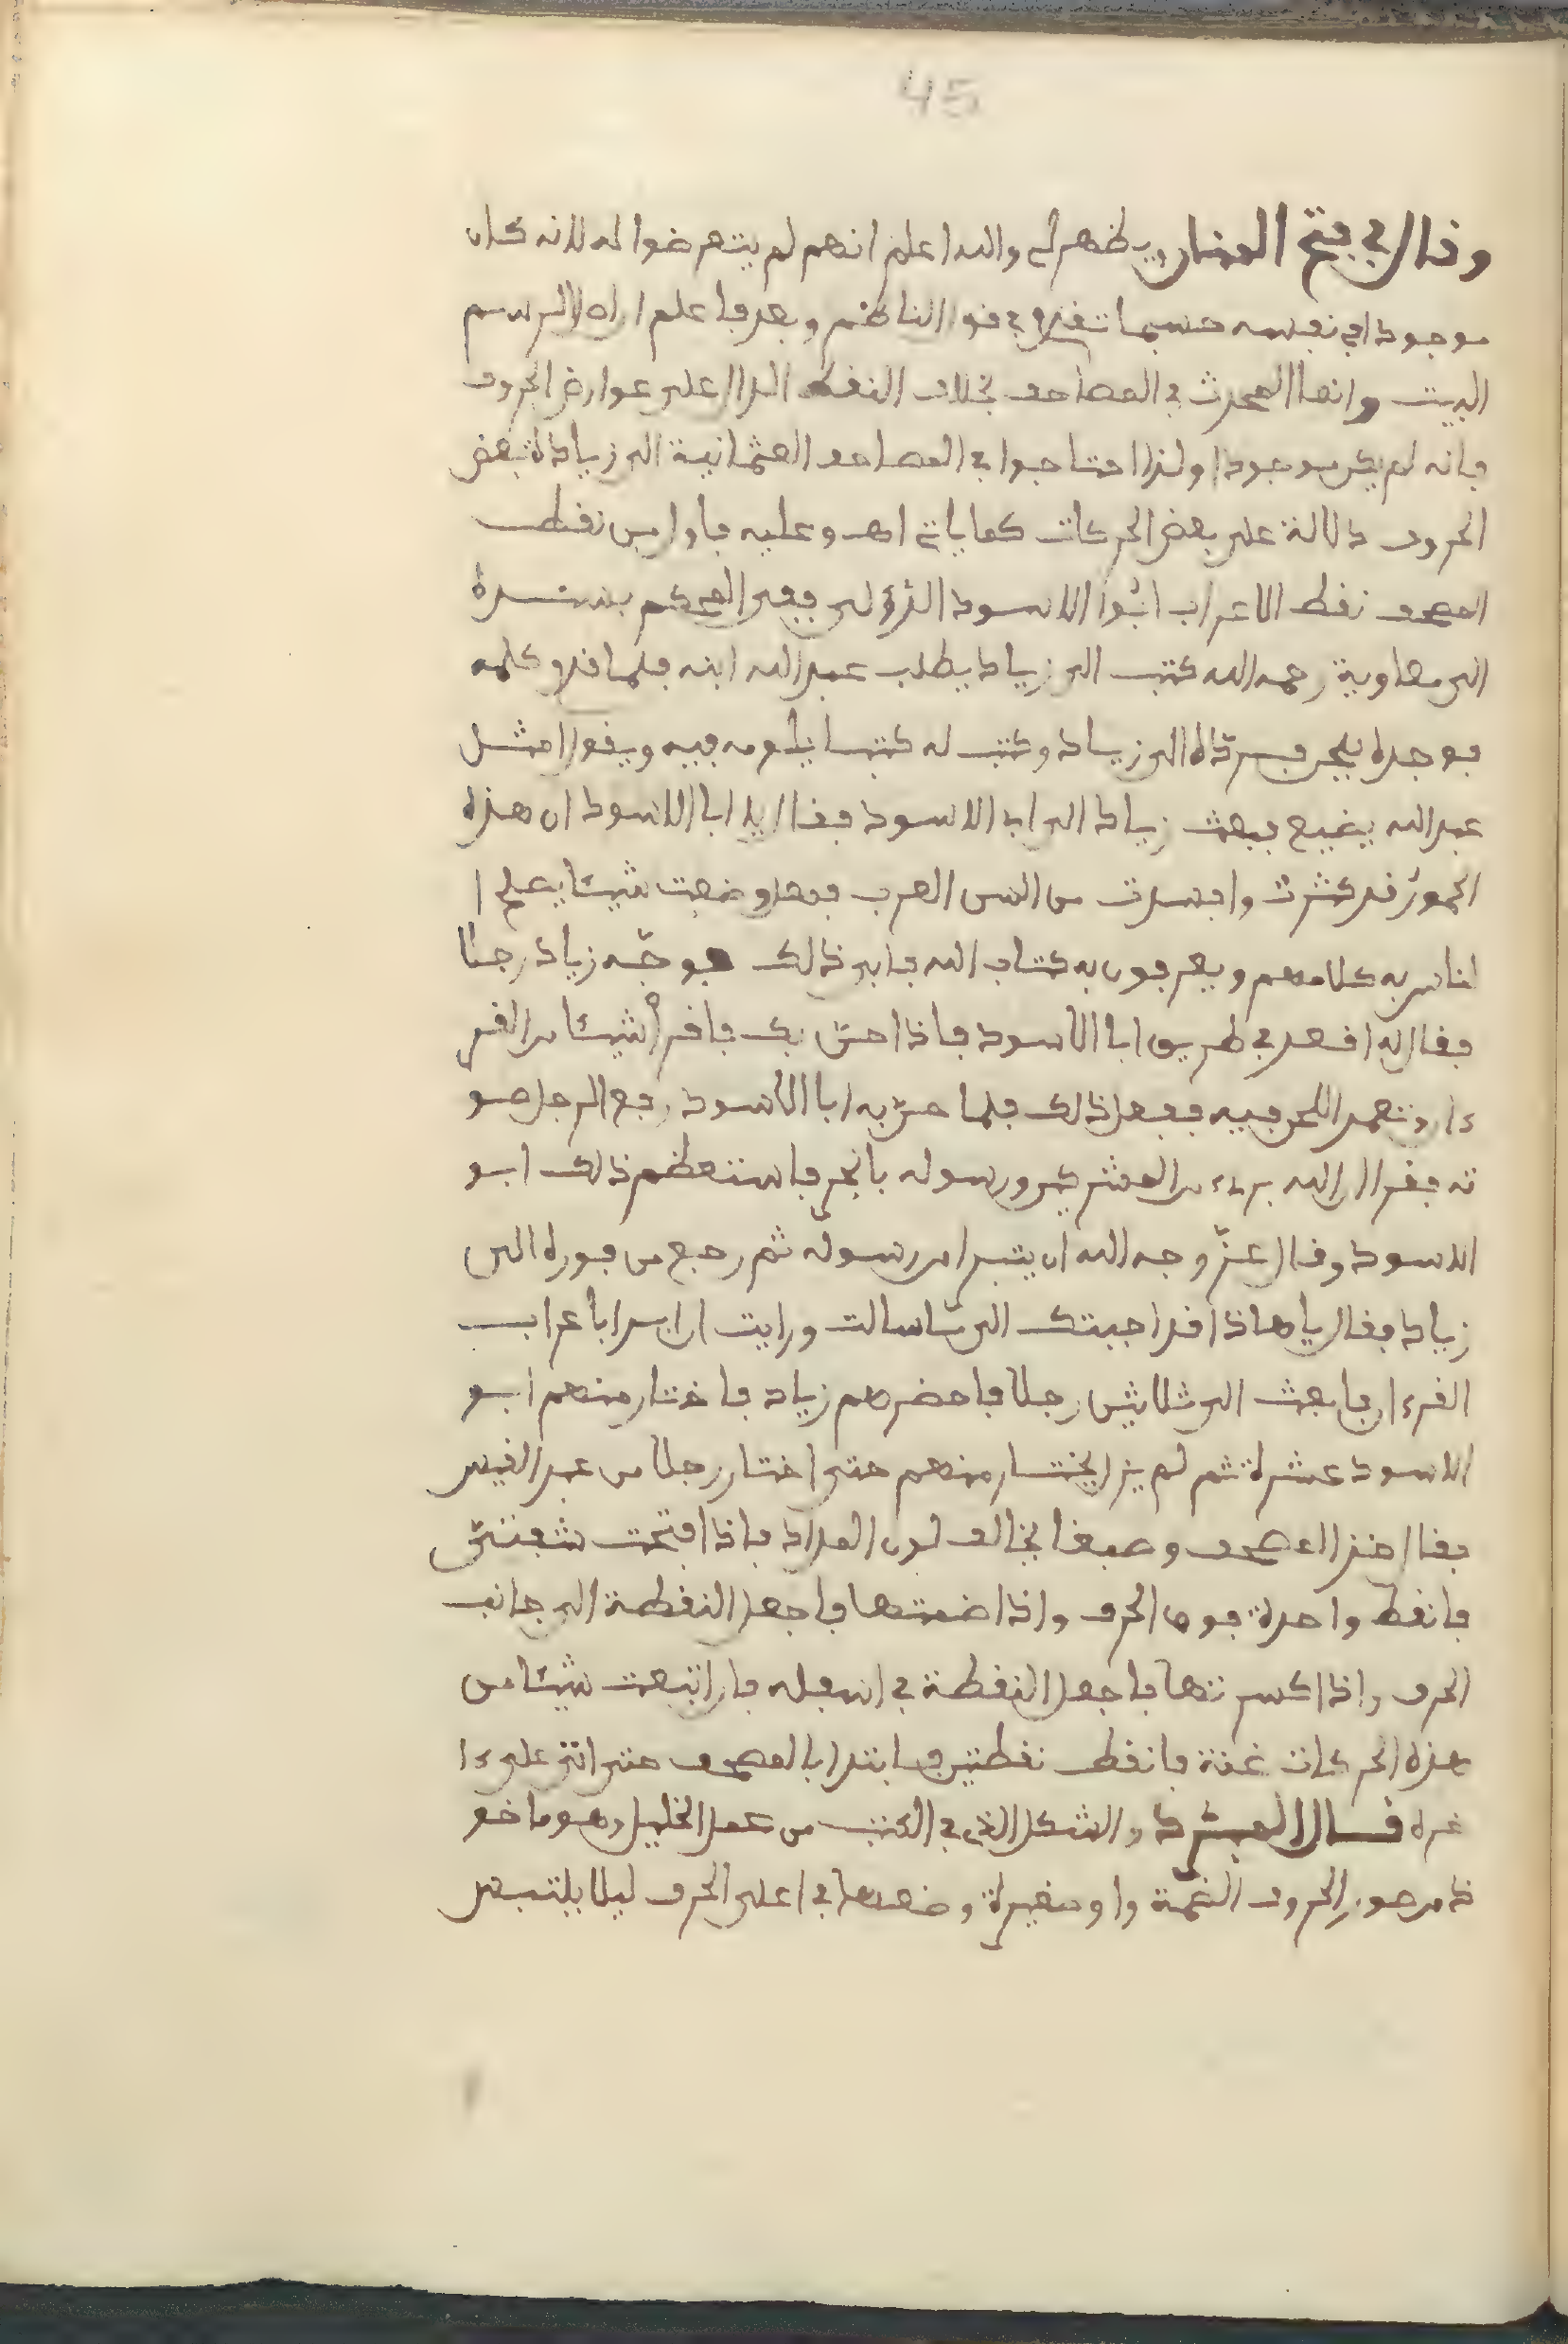 45
وقال في فتح المنان ويظهر لي والله اعلم انهم لم يتعرضوا له لانه كان
موجودا في نفسه حسبما تقدم في قول الناظم وبعد فاعلم ان اصل الرسم
البيت وانما المحدث في المصاحف بخلاف النقط الدال على عوارض الحروف
فانه لم يكن موجودا ولذا احتاجوا في المصاحف العثمانية الى زيادة بعض
الحروف دلالة على بعض الحركات كما ياتي اهـ وعليه فاول من نقط
المصحف نقط الاعراب ابوا الاسود الدؤلي ففي المحكم بسنده
الى معاوية رحمه الله كتب الى زياد يطلب عبد الله ابنه فلما قدم كلمه
فوجده يلحن فردّه الى زياد وكتب له كتبا يلومه فيه ويقول امثل
عبد الله يضيع فبعث زياد الى ابي الاسود فقال يا ابا الاسود ان هذه
الحمرٓ قد كثرت وافسدت من السن العرب فلو وضعت شيئا يصلح ا
لناس به كلامهم ويعرفون به كتاب الله فابى ذالك فوجّه زياد رجلا
فقال له اقعد في طريق ابا الاسود فاذا مرّ بك فاقرأ شيئا من القر
ءان وتعمد اللحن فيه ففعل ذالك فلما مرّ به ابا الاسود رفع الرجل صو
ته فقرا ان الله برىء من المشركين ورسوله بالجر فاستعظم ذلك ابو
الاسود وقال عزّ وجه الله ان يتبرا من رسوله ثم رجع من فوره الى
زياد فقال يا هاذا قد اجبتك الى ما سالت ورايت ان ابدا باعراب
القرءان فابعث الى ثلاثين رجلا فاحضرهم زياد فاختار منهم ابو
الاسود عشرة ثم لم يزل يختار منهم حتى اختار رجلا من عبد القيس
فقال خذ المصحف وصبغا يخالف لون المداد فاذا فتحت شفتيّ
فانقط واحدة فوق الحرف واذا ضممتها فاجعل النقطة الى جانب
الحرف واذا كسرتها فاجعل النقطة في اسفله فان اتبعت شيئا من
هذه الحركات غنة فانقط نقطتين فابتدا بالمصحف حتى اتى على ءا
خره قال المبرّد والشكل الذي في الكتب من عمل الخليل وهو ماخو
ذ من صور الحروف الضمة واو صغيرة وضعها في اعلى الحرف ليلا يلتبس